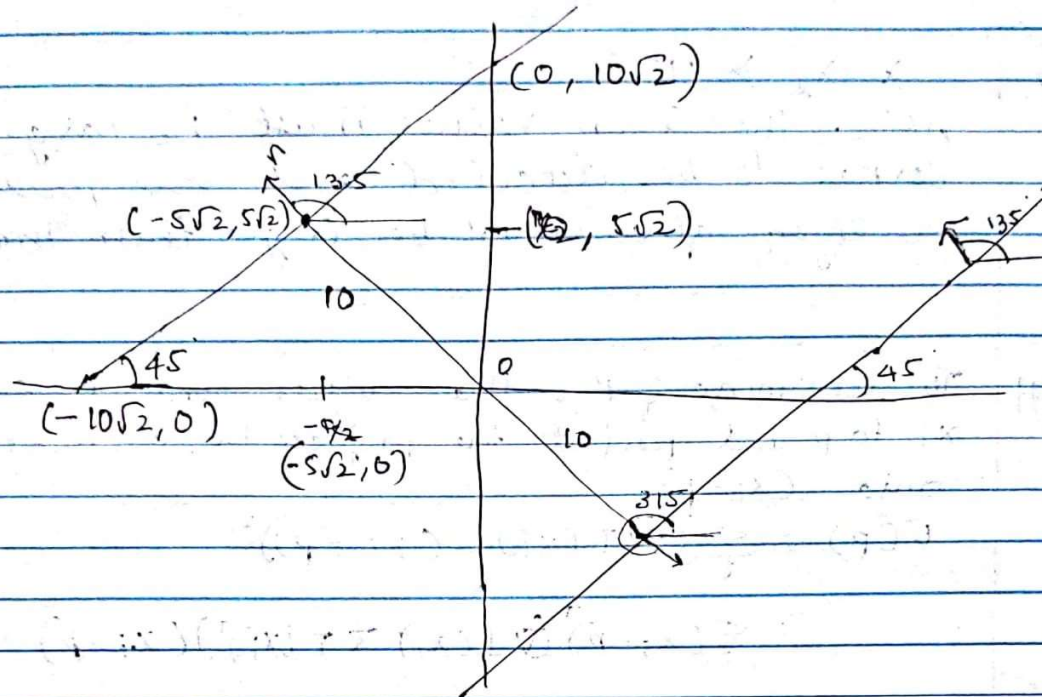 (0, 10√2)
r
135
(-5√2, 5√2)
, 5√2)
135
10
45
0
45
(-10√2, 0)
(-5√2, 0)
10
315